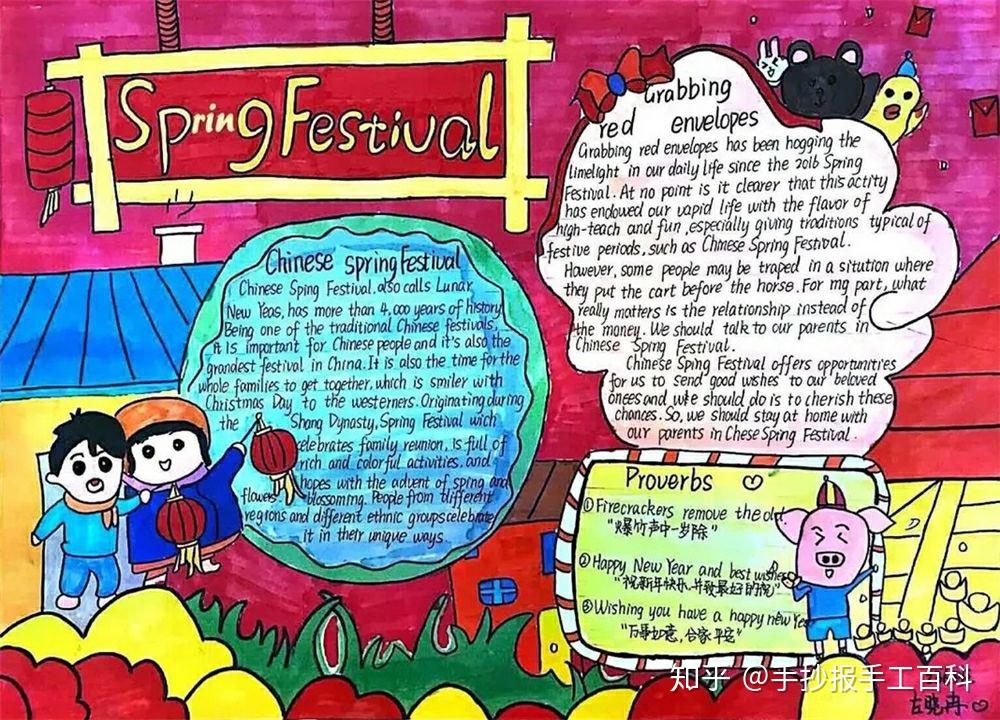 Spring Festival
Chinese spring Festival
Chinese Sping Festival. also calls Lunar
New Yeas, has more than 4,000 years of history
Being one of the traditional Chinese festivals,
it is important for Chinese people and it's also the
grandest festival in China. It is also the time for the
whole families to get together, which is smiler with
Christmas Day to the westerners. Originating during
the Shang Dynasty, Spring Festival wich
celebrates family reunion, is full of
rich and colorful activities, and
hopes with the advent of sping and
flowers blossoming. People from different
regions and different ethnic groups celebrate
it in their unique ways
Grabbing
red envelopes
Grabbing red envelopes has been hogging the
limelight in our daily life since the 2016 Spring
Festival. At no point is it clearer that this actity
has endowed our vapid life with the flavor of
high-teach and fun, especially giving traditions typical of
festive periods, such as Chinese Spring Festival.
However, some people may be traped in a sitution where
they put the cart before the horse. For my part, what
really matters is the relationship instead of
the money. We should talk to our parents in
Chinese Sping Festival.
Chinese Sping Festival offers opportunities
for us to send good wishes to our beloved
onees and should do is to cherish these
chances. So, we should stay at home with
our parents in Chese Sping Festival.
Proverbs
①Firecrackers remove the old
"爆竹声中一岁除"
②Happy New Year and best wishes
"祝新年快乐,并致最好的祝"
③Wishing you have a happy new Yea
"万事如意,合家平安"
知乎 @手抄报手工百科
左晓冉